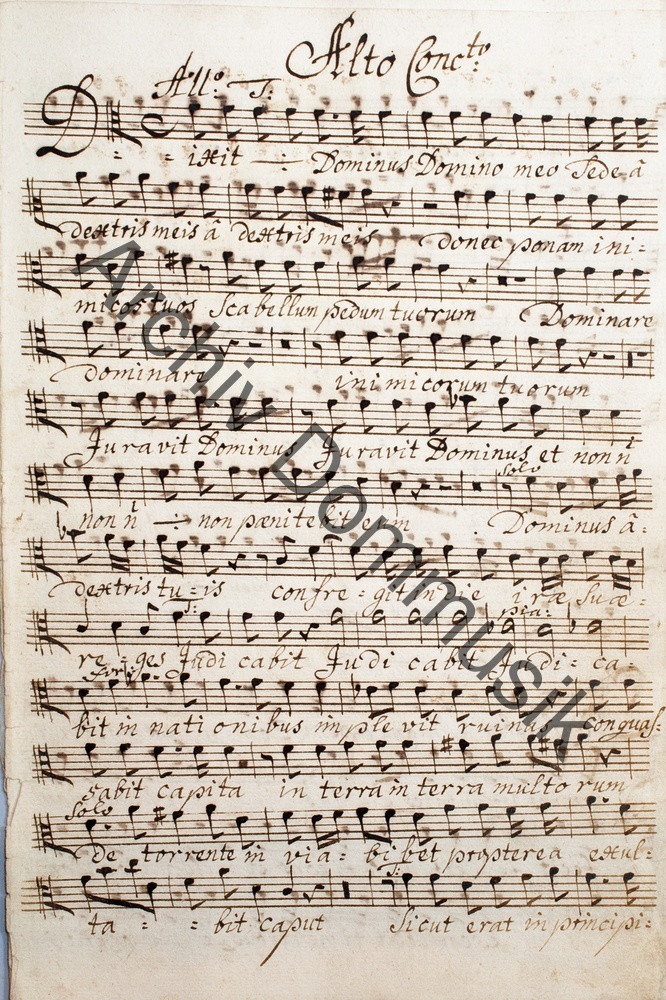 Alto Conc.to
All.o T:
Dixit Dominus Domino meo Sede â
dextris meis â dextris meis donec ponam ini=
micos tuos Scabellum pedum tuorum Dominare
dominare inimicorum tuorum
Juravit Dominus Juravit Dominus et non
Solo
non non pænitebit eum Dominus â=
dextris tu=is confre=git in die iræ suæ=
T: pia:
re=ges Judicabit Judicabit Judi=ca=
forte
bit in nationibus implevit ruinas conquas=
sabit capita in terra in terra multorum
Solo
de torrente in via=bibet propterea exul=
T:
ta==bit caput Sicut erat in principi=
Archiv Dommusik